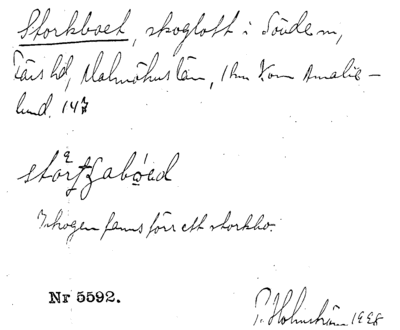 Storkboet, skoglott i Sövde sn,
Färs hd, Malmöhus län, 1 km V om Amalie-
lund. 147
I skogen fanns förr ett storkbo.
Nr 5592.
P. Holmström 1998